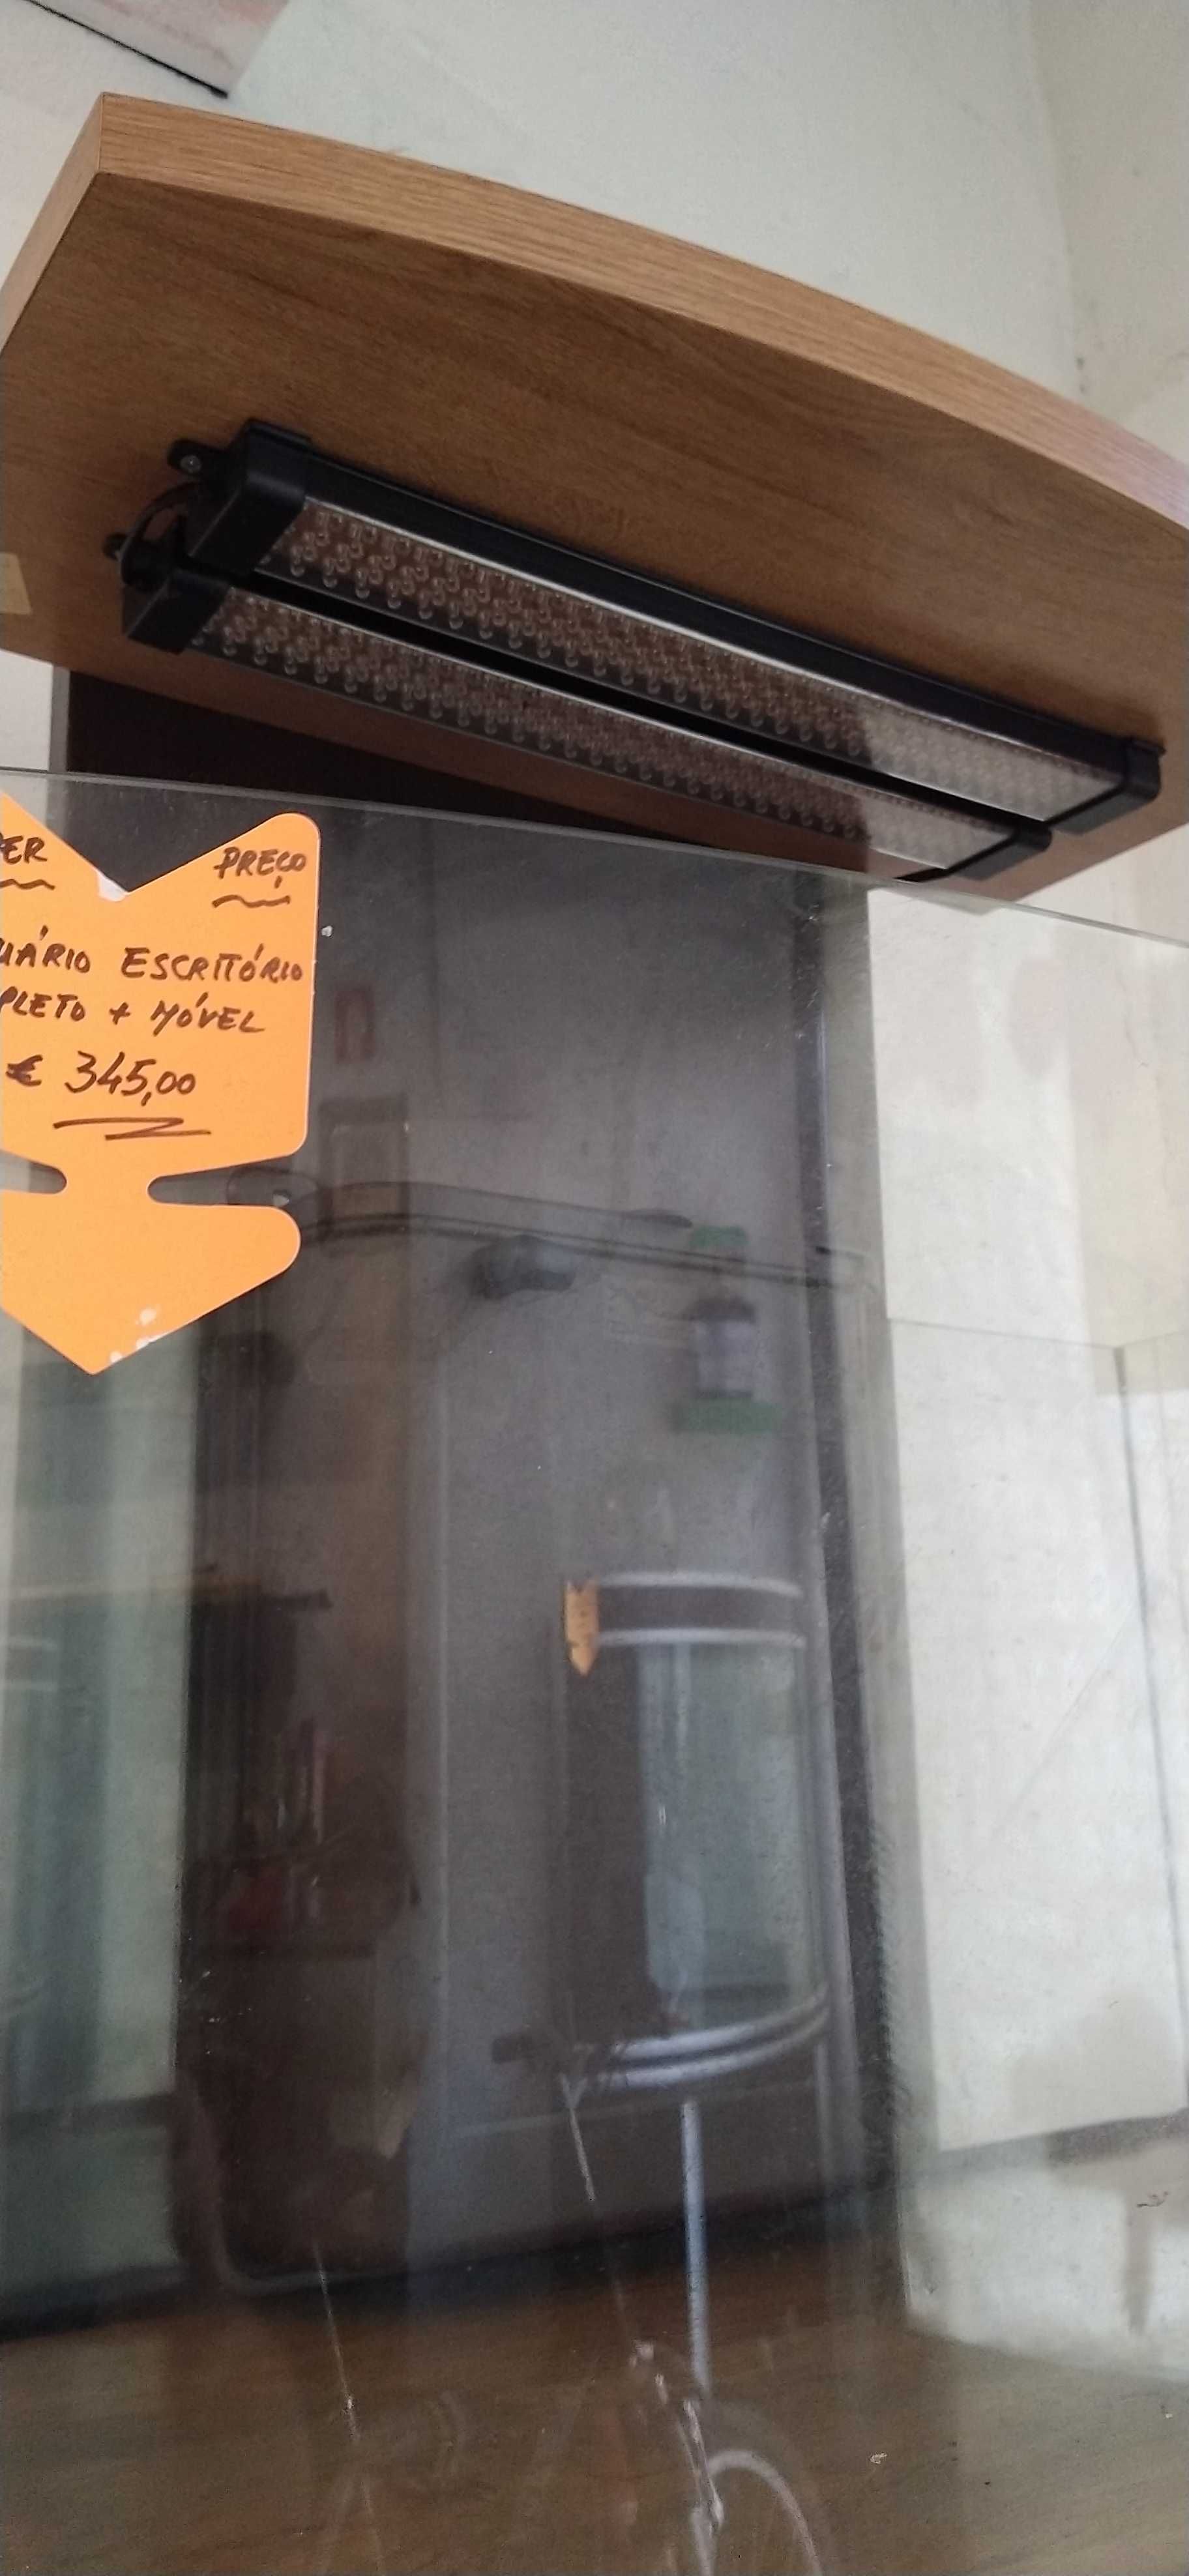 ER PREÇO
UÁRIO ESCRITÓRIO
PLETO + MÓVEL
€ 345,00